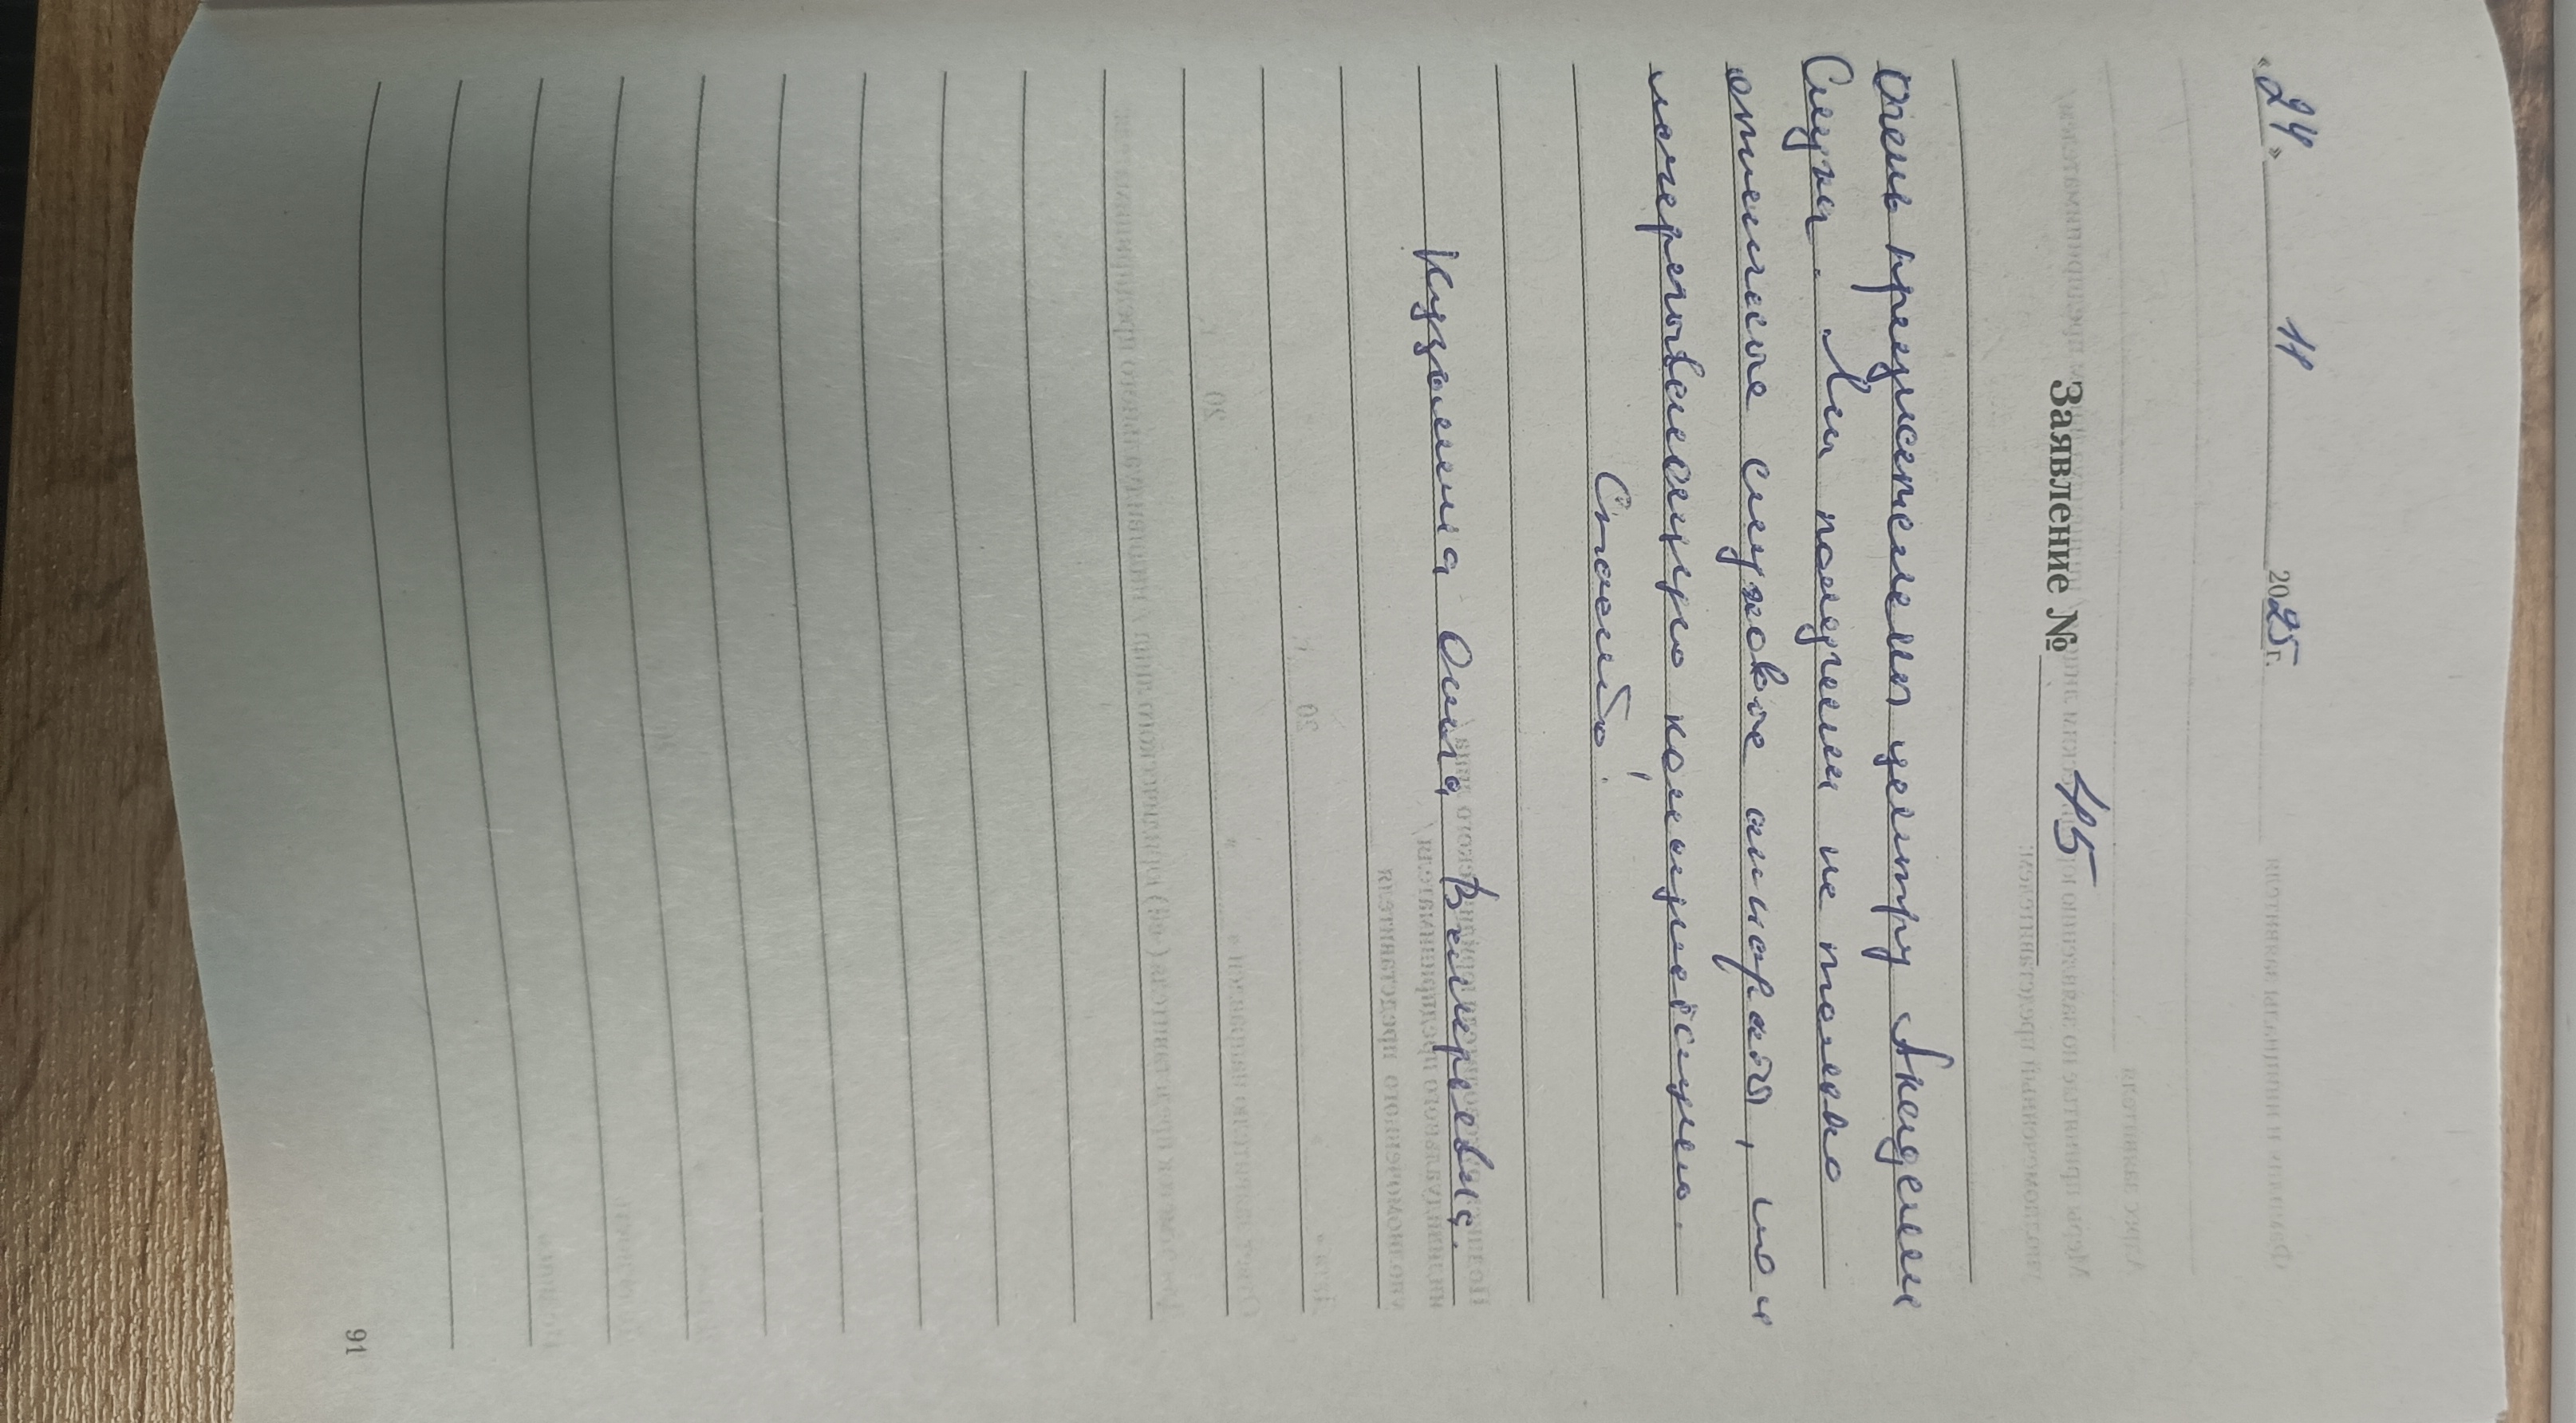 «24» 11 2025г.
Заявление № 45
Очень признательны центру Академии
Слуха. Мы получили не только
отличные слуховые аппараты, но и
исчерпывающую консультацию.
Спасибо!
Кузьмина Анна Викторовна.
91